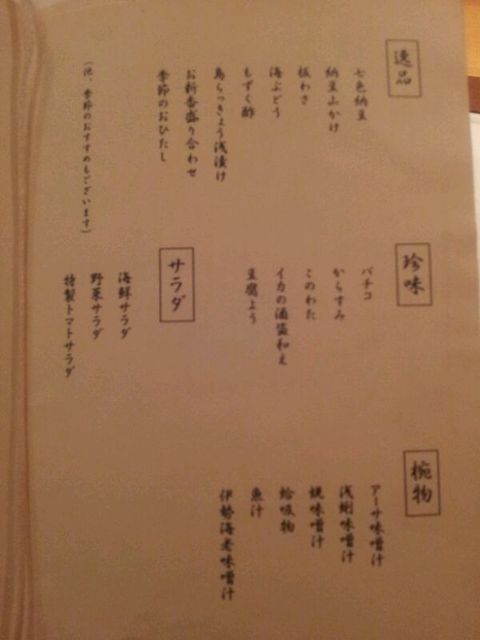 逸品
七色納豆
納豆山かけ
板わさ
海ぶどう
もずく酢
島らっきょう浅漬け
お新香盛り合わせ
季節のおひたし
(他、季節のおすすめもございます)
珍味
バチコ
からすみ
このわた
イカの酒盗和え
豆腐よう
サラダ
海鮮サラダ
野菜サラダ
特製トマトサラダ
椀物
アーサ味噌汁
浅蜊味噌汁
蜆味噌汁
蛤吸物
魚汁
伊勢海老味噌汁